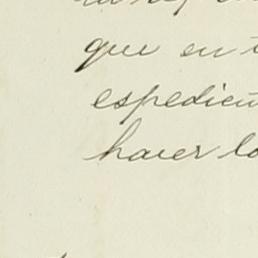 que en
espedien
hacer lo